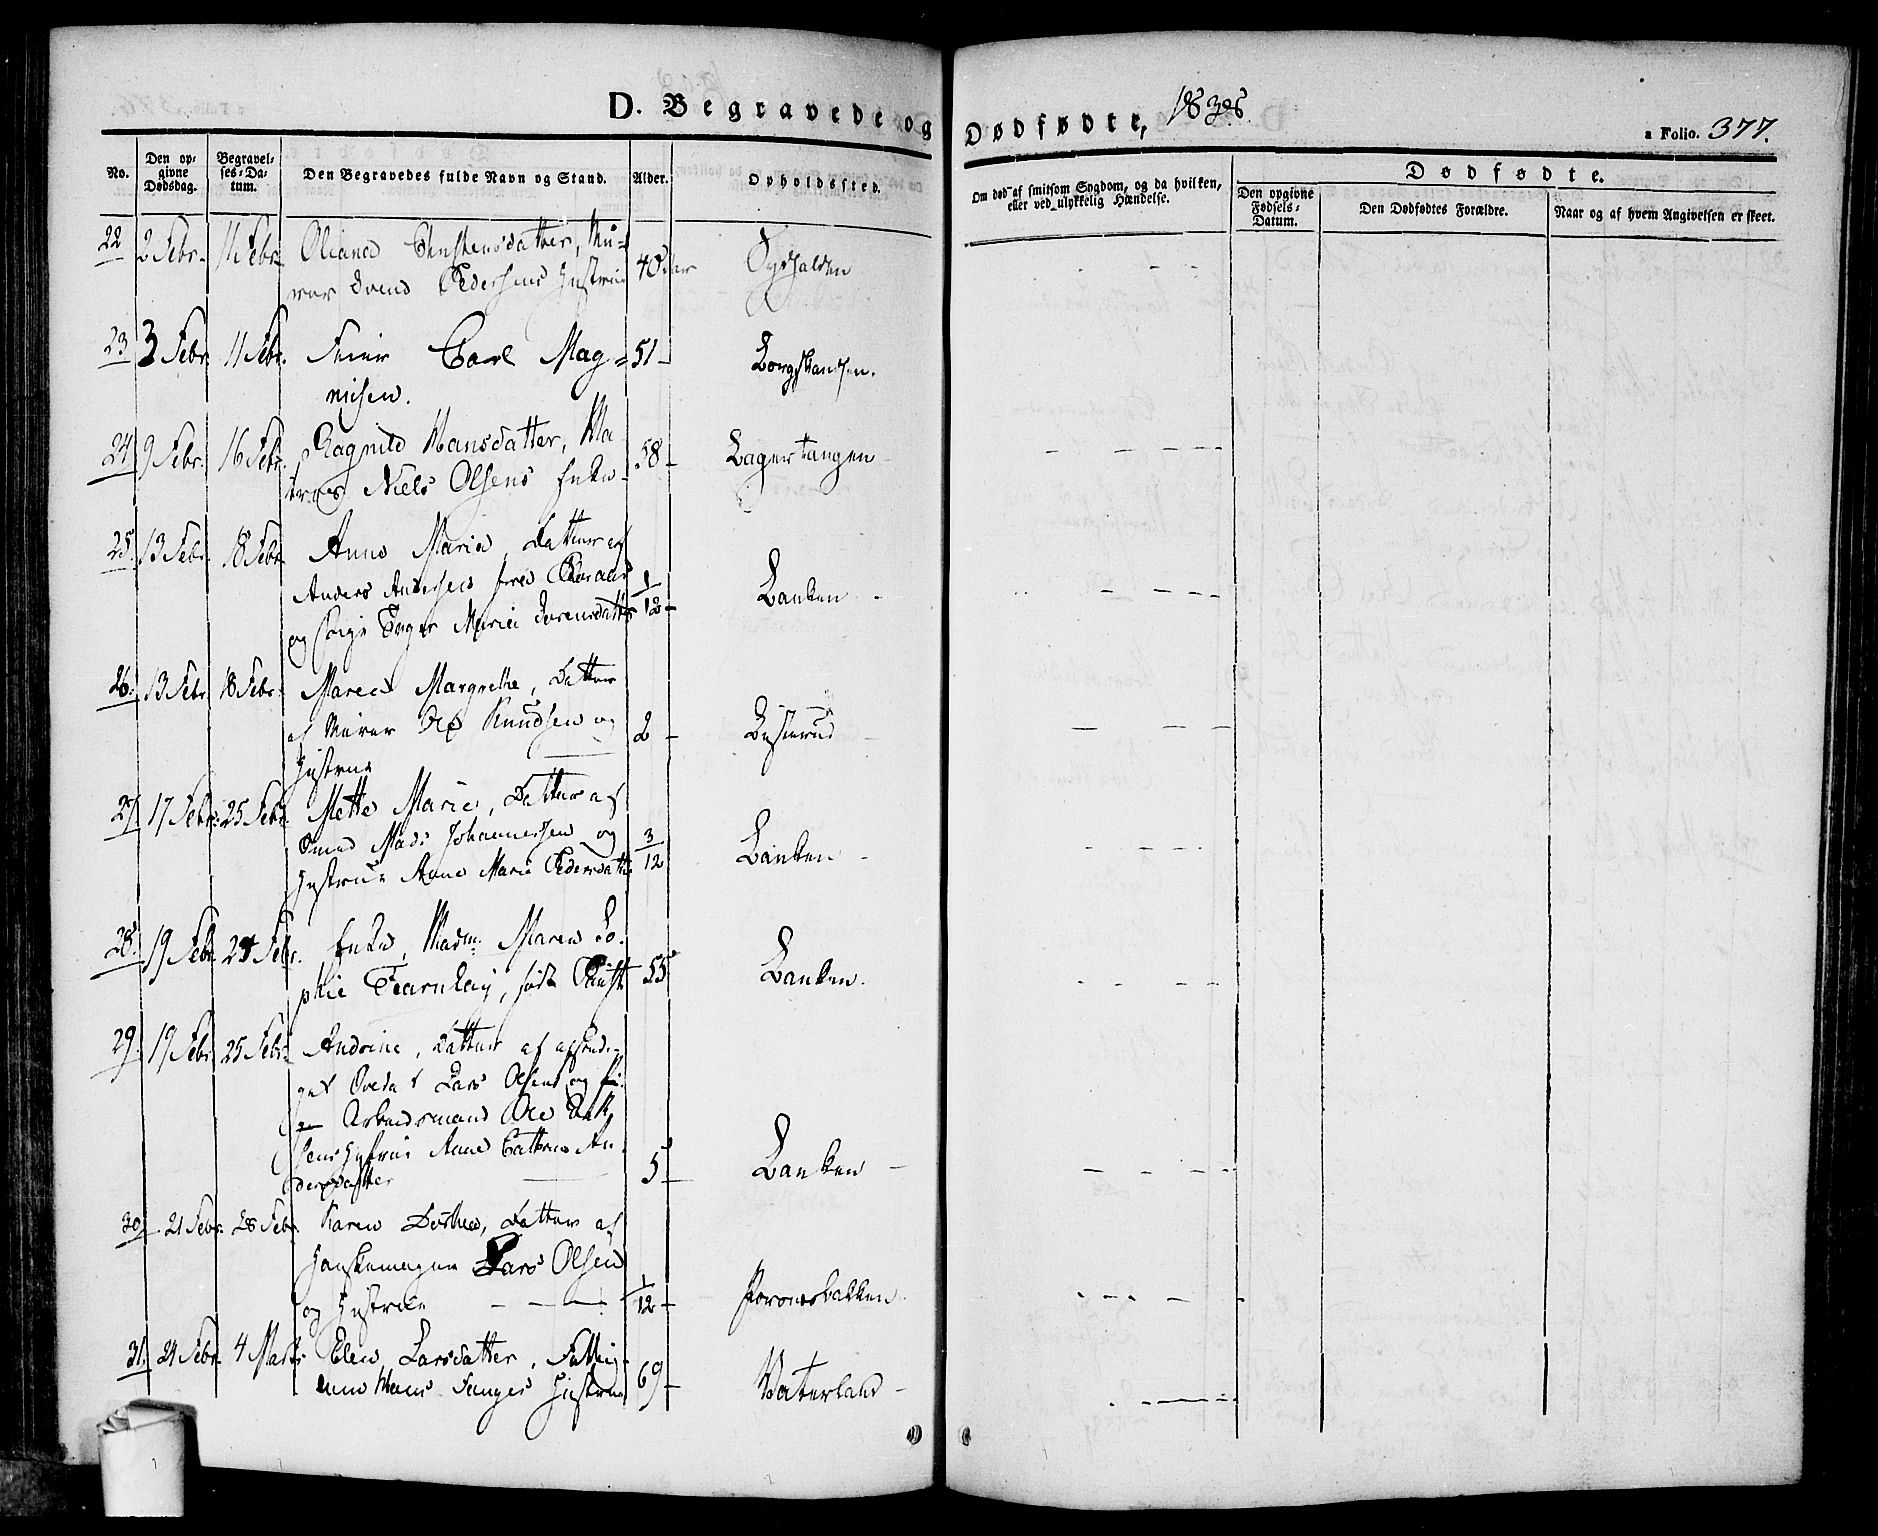 D. Begravede og
Dødfødte, 1838
a Folio. 377.
No.
Den op-
givne
Dødsdag.
Begravel-
ses-Da-
tum.
Den Begravedes fulde Navn og Stand.
Alder.
Opholdssted.
Om død af smitsom Sygdom, og da hvilken,
eller ved ulykkelig Hændelse.
Dødfødte.
Den opgivne
Fødsels-
Datum.
Den Dødfødtes Forældre.
Naar og af hvem Angivelsen er skeet.
22 2 Febr. 11 Febr. Oliana Christensdatter, Mu-
rer Svend Pedersens Hustrue 40 Aar Sydhalden
23 3 Febr. 11 Febr. Feier Carl Mag- 51-
nusen.
24 9 Febr. 16 Febr. Ragnild Hansdatter, Ma
tros Niels Olsens Enke 58- Lagertangen
25 13 Febr. 18 Febr. Anne Maria, Datter af
Anders Andersen fra
og Pige Inger Marie Sørensdatter 1/12- Banken
26. 13 Febr. 18 Febr. Maren Margrethe, Datter
af Murer Ole Knudsen og 2-
Hustrue
27 17 Febr. 25 Febr. Mette Marie, Datter af
Smed Mads Johannessen og
Hustrue Anne Marie Pedersdatter 3/12 Banken
28. 19 Febr. 24 Febr. Enke, Madm. Maren So-
phie Fearnley, født 55 Banken.
29. 19 Febr. 25 Febr. Andrine, Datter af afskedi-
get Soldat Lars Olsen og
Arbeidsmand Ole
sens Hustrue Anne Cathrine An-
dersdatter 5- Banken
30 21 Febr. 28 Febr. Karen Dorthea, Datter af
Handskemager Lars Olsen
og Hustrue 1/12- Borvesbakken
31. 24 Febr. 4 Marts Elen Larsdatter, Fattig-
lem Hans Hustrue 69- Waterland